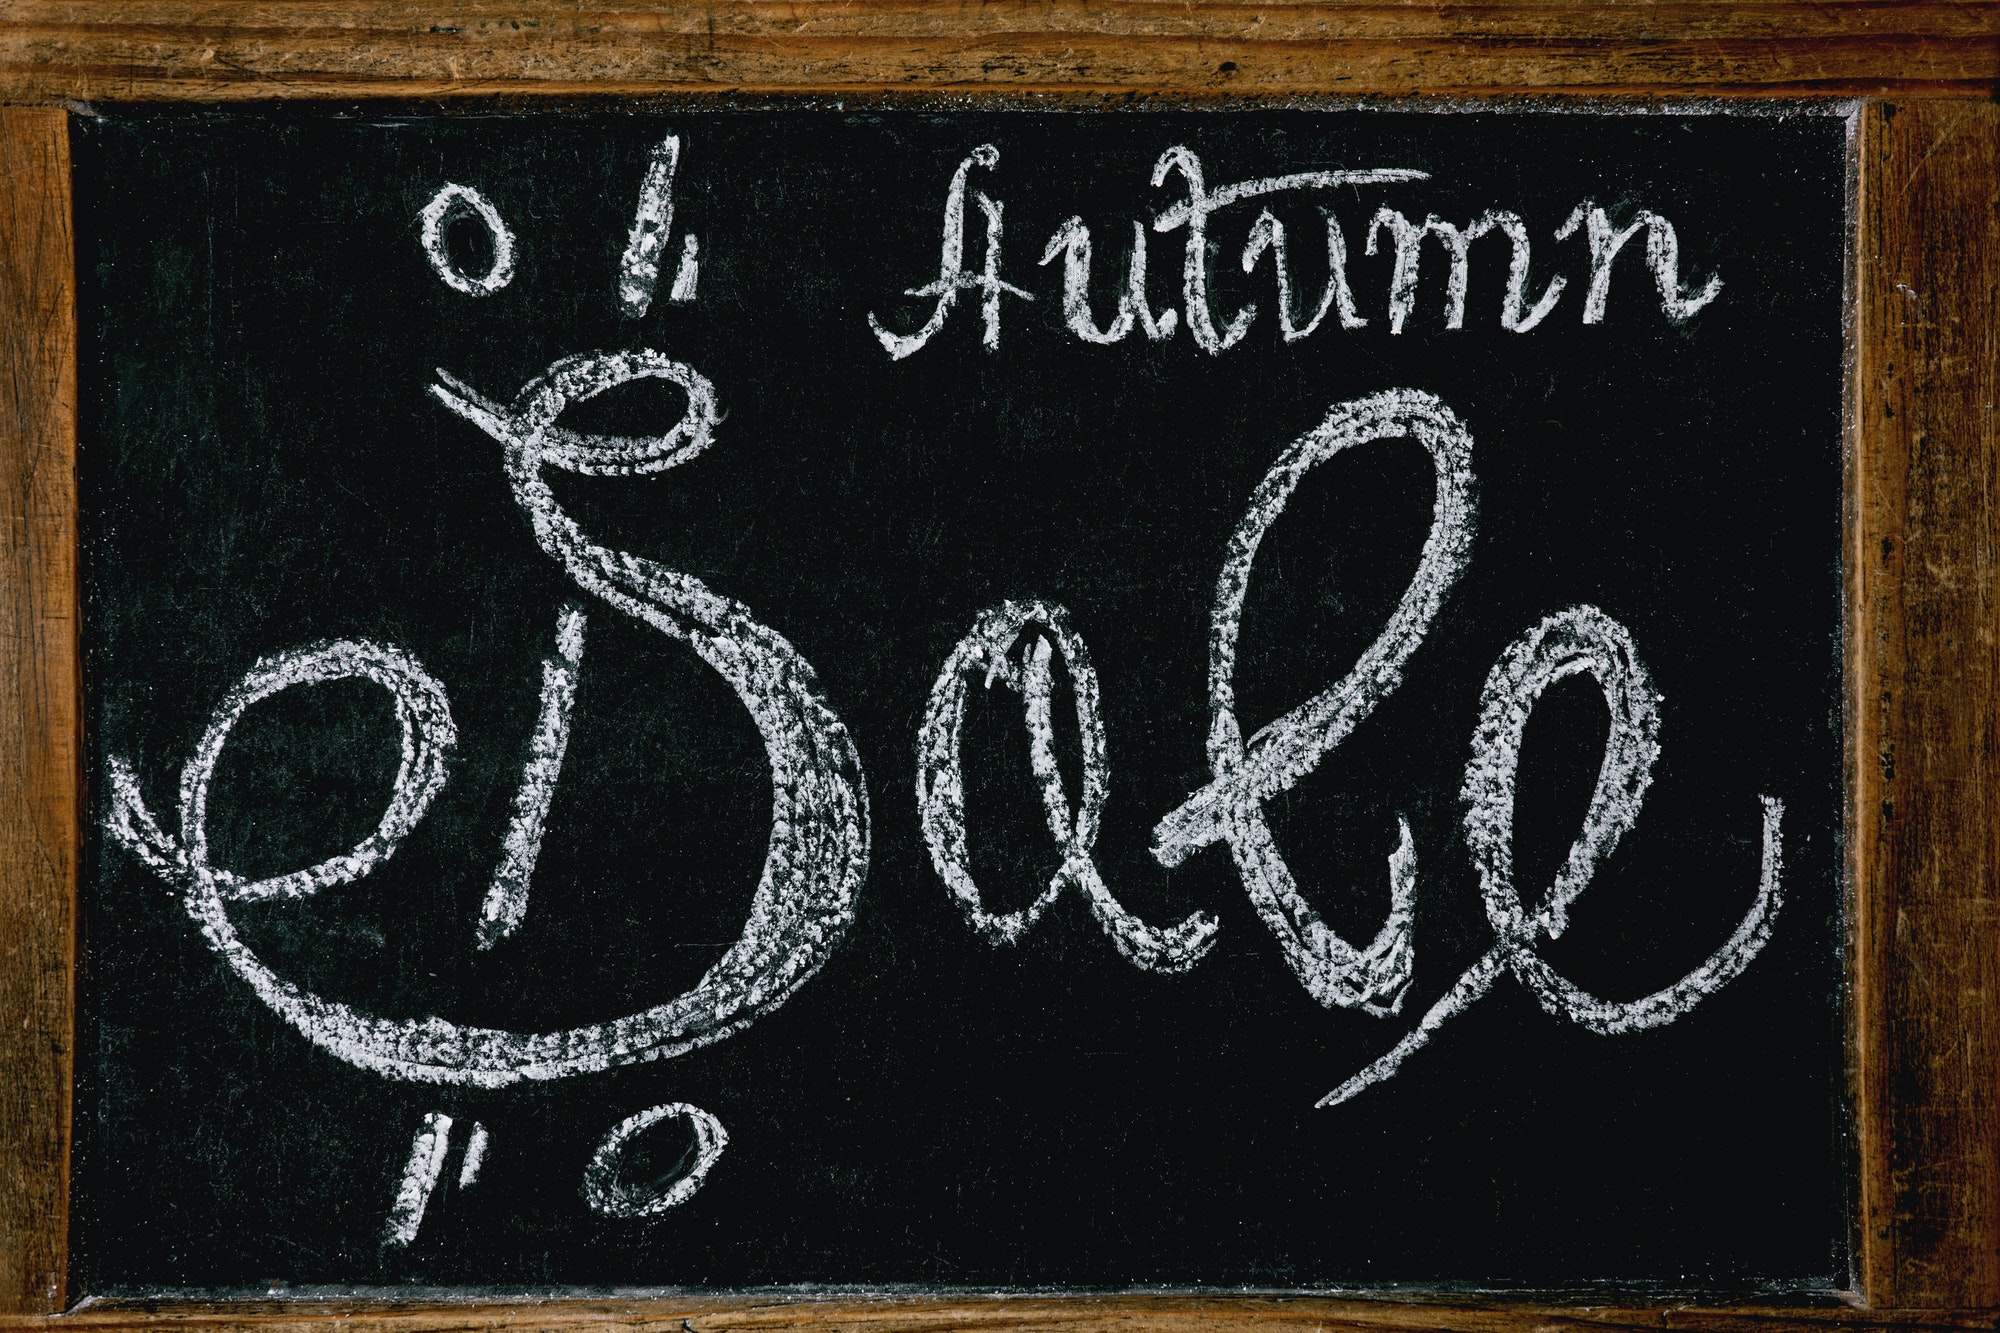 Autumn
Sale